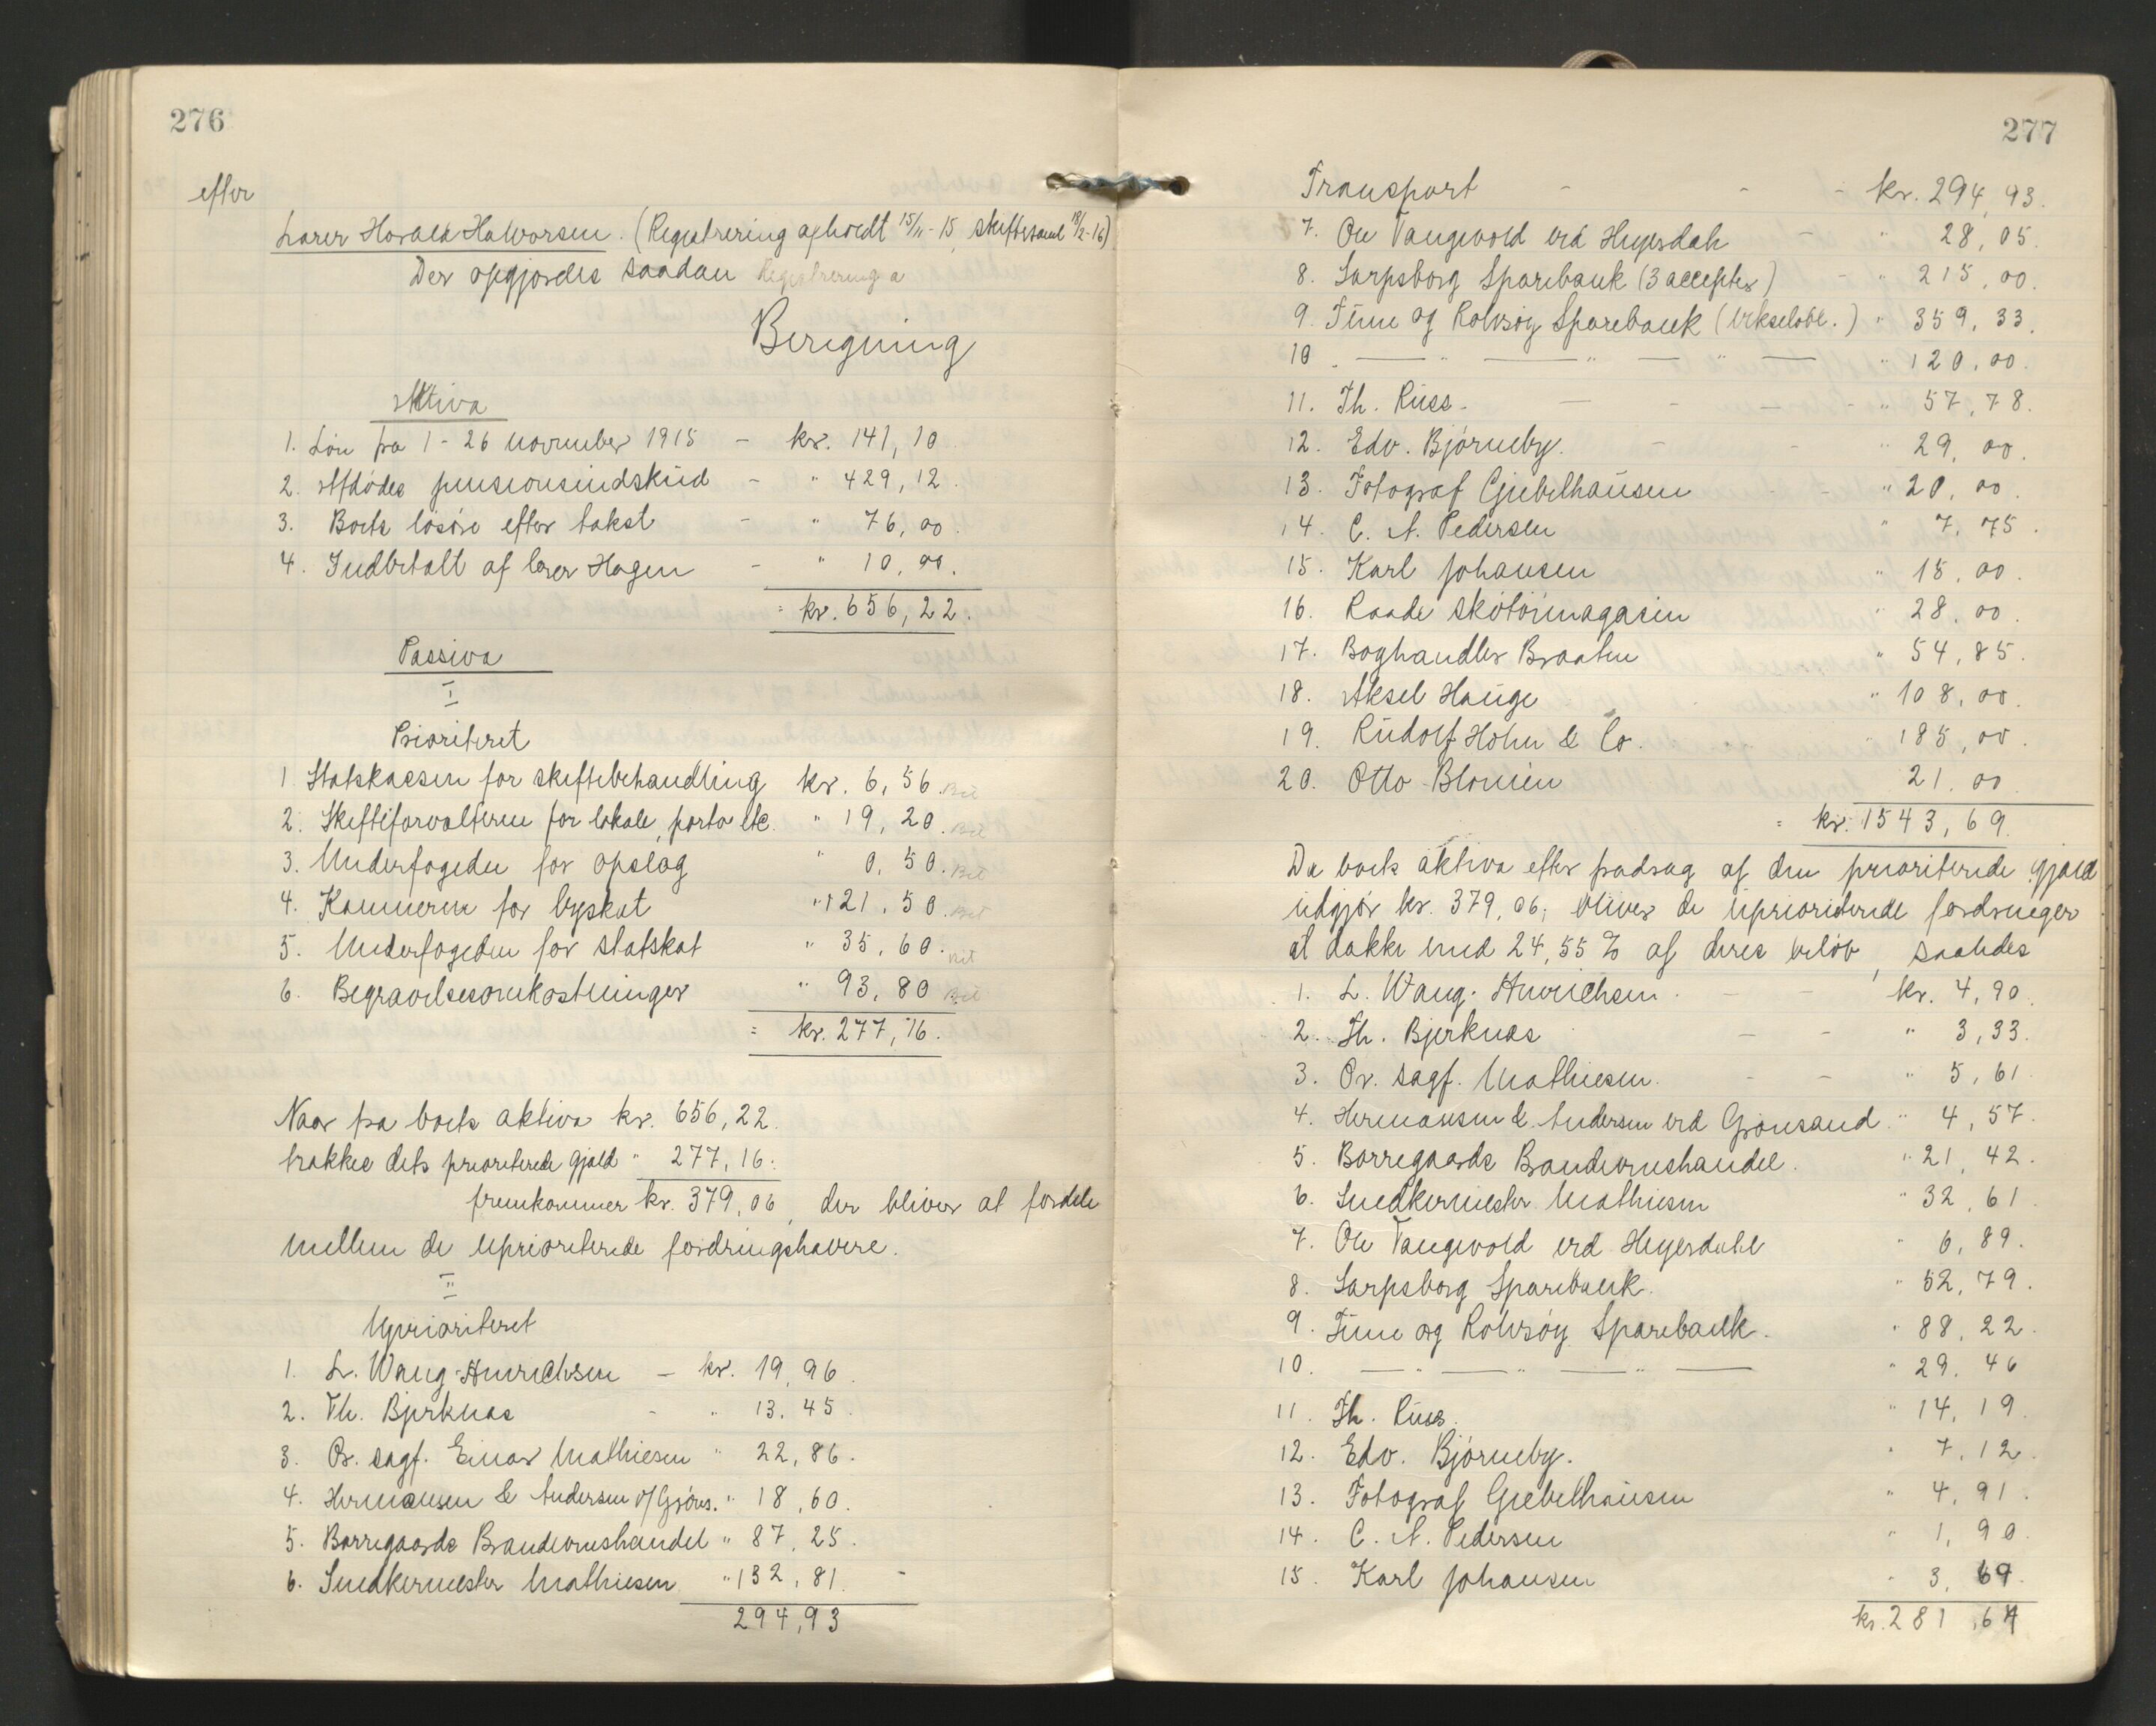 276
efter
Lærer Harald Halvorsen. (Registrering afholdt 15/11-15, skiftesaml 18/2-16)
Der opgjordes saadan Registrering a
Beregning
Aktiva
1. Løn fra 1-26 november 1915 - kr. 141,10
2. Afdødes pensionsindskud - " 429,12
3. Boets løsøre efter takst - " 76,00
4. Indbetalt af lærer Hagen - " 10,00.
= kr. 656,22.
Passiva
I
Prioriteret
1 Statskassen for skiftebehandling kr. 6,56. Bet
2. Skifteforvalteren for lokale, porto etc. " 19,20. Bet
3. Underfogeden for opslag " 0,50. Bet
4. Kæmneren for byskat " 121,50. Bet
5. Underfogeden for statskat " 35,60. Bet
6. Begravelsesomkostninger " 93,80 Bet
= kr. 277,16.
Naar fra boets aktiva kr. 656,22.
trækkes dets prioriterede gjæld " 277,16.
fremkommer kr. 379,06, der bliver at fordele
mellem de uprioriterede fordringshavere.
II
Uprioriteret
1. L. Wang-Hinrichsen - kr. 19,96
2. Th. Bjerknæs - " 13,45
3. Or. sagf. Einar Mathiesen " 22,86.
4. Hermansen & Andersen v/Gröns. " 18,60.
5. Borregaards Brændevinshandel " 87,25.
6. Snedkermester Mathiesen " 132,81. -
294,93
277
Transport - - - kr. 294,93.
7. Ole Tangevold ved Heyerdah - " 28,05.
8. Sarpsborg Sparebank (3 accepter) - " 215,00.
9. Tune og Rolvsøy Sparebank (Vekselobl.) " 359,33.
10. — " — " — " — " 120,00.
11. Th. Russ. — - — - " 57,78.
12. Edv. Bjørneby. - - " 29,00.
13. Fotograf Giebelhausen - - " 20,00.
14. C. A. Pedersen " 7,75.
15. Karl Johansen " 15,00.
16. Raade skotøimagasin " 28,00.
17. Boghandler Braaten " 54,85.
18. Aksel Hauge " 108,00.
19. Rudolf Höhn & Co. " 185,00.
20. Otto Blomén 21.00
= kr. 1543,69.
Da boets aktiva efter fradrag af den prioriterede gjæld
udgjør kr. 379,06, bliver de uprioriterede fordringer
at dække med 24,55 % af deres beløb, saaledes
1. L. Wang-Hinrichsen. - - kr. 4,90.
2. Th. Bjerknæs - - " 3,33.
3. Or. sagf. Mathiesen. - - " 5,61
4. Hermansen & Andersen ved Grønsand " 4,57.
5. Borregaards Brændevinshandel. " 21,42.
6. Snedkermester Mathiesen " 32,61
7. Ole Tangevold ved Heyerdahl " 6,89.
8. Sarpsborg Sparebank. " 52,79.
9. Tune og Rolvsøy Sparebank. " 88,22.
10. — " — " — " — " 29.46
11. Th. Russ. " 14,19
12. Edv. Bjørneby. " 7,12
13. Fotograf Giebelhausen " 4,91.
14. C. A. Pedersen " 1,90.
15. Karl Johansen " 3,69.
kr. 281,64